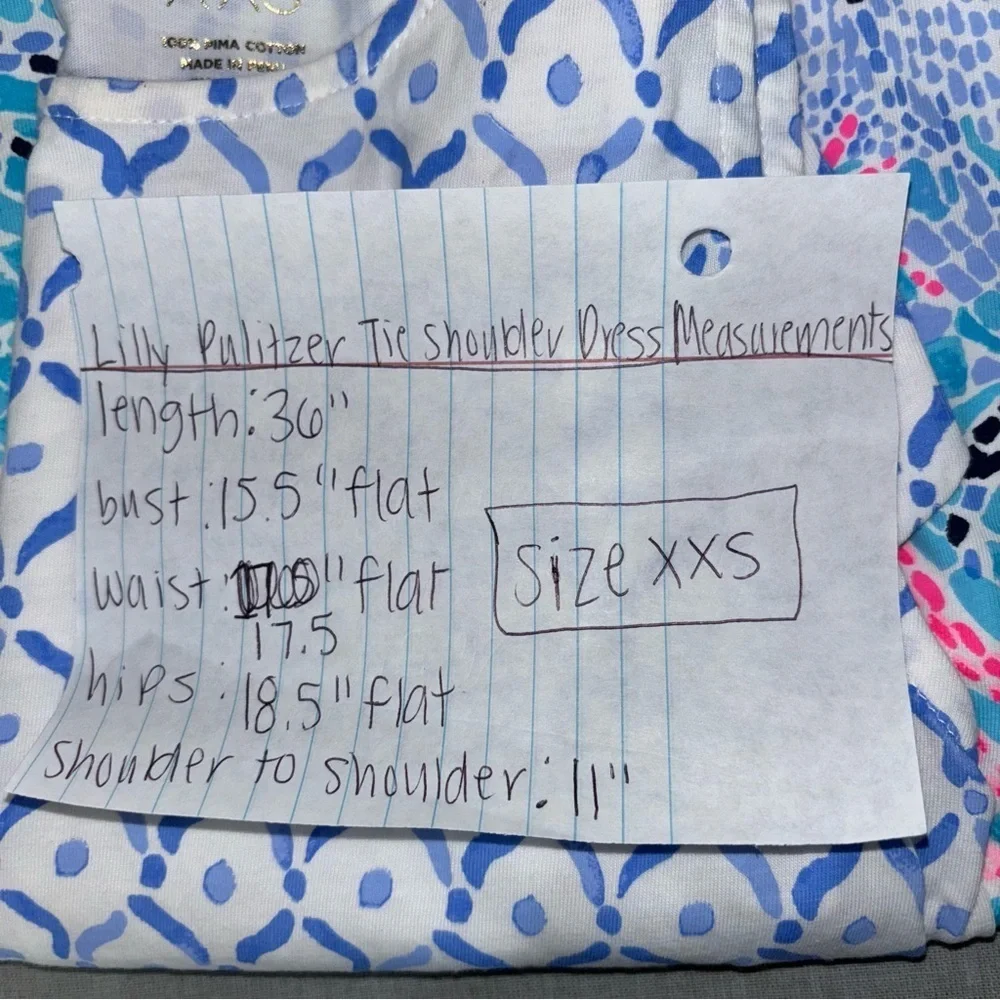 XXS
100% PIMA COTTON
MADE IN PERU
Lilly Pulitzer Tie Shoulder Dress Measurements
length: 36"
bust: 15.5" flat
waist: " flat
17.5
hips: 18.5" flat
Shoulder to shoulder: 11"
Size XXS